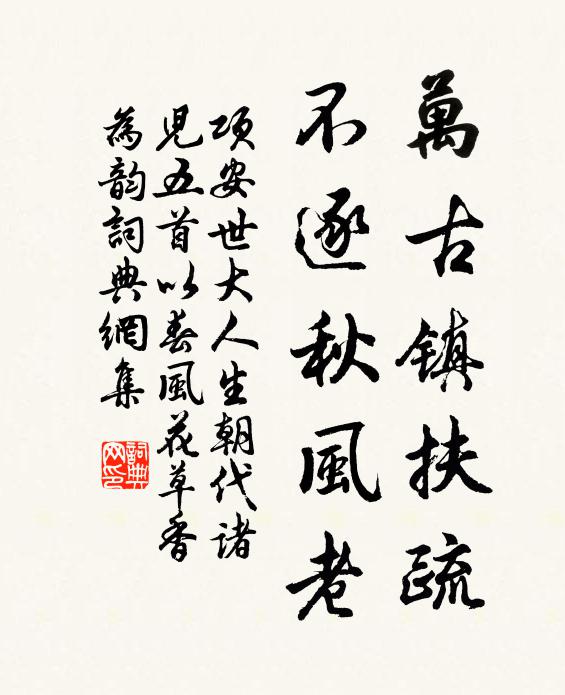 萬古鎮扶疏
不逐秋風老
項安世大人生朝代諸
兒五首以春風花草香
為韵詞典網集
詞典网印